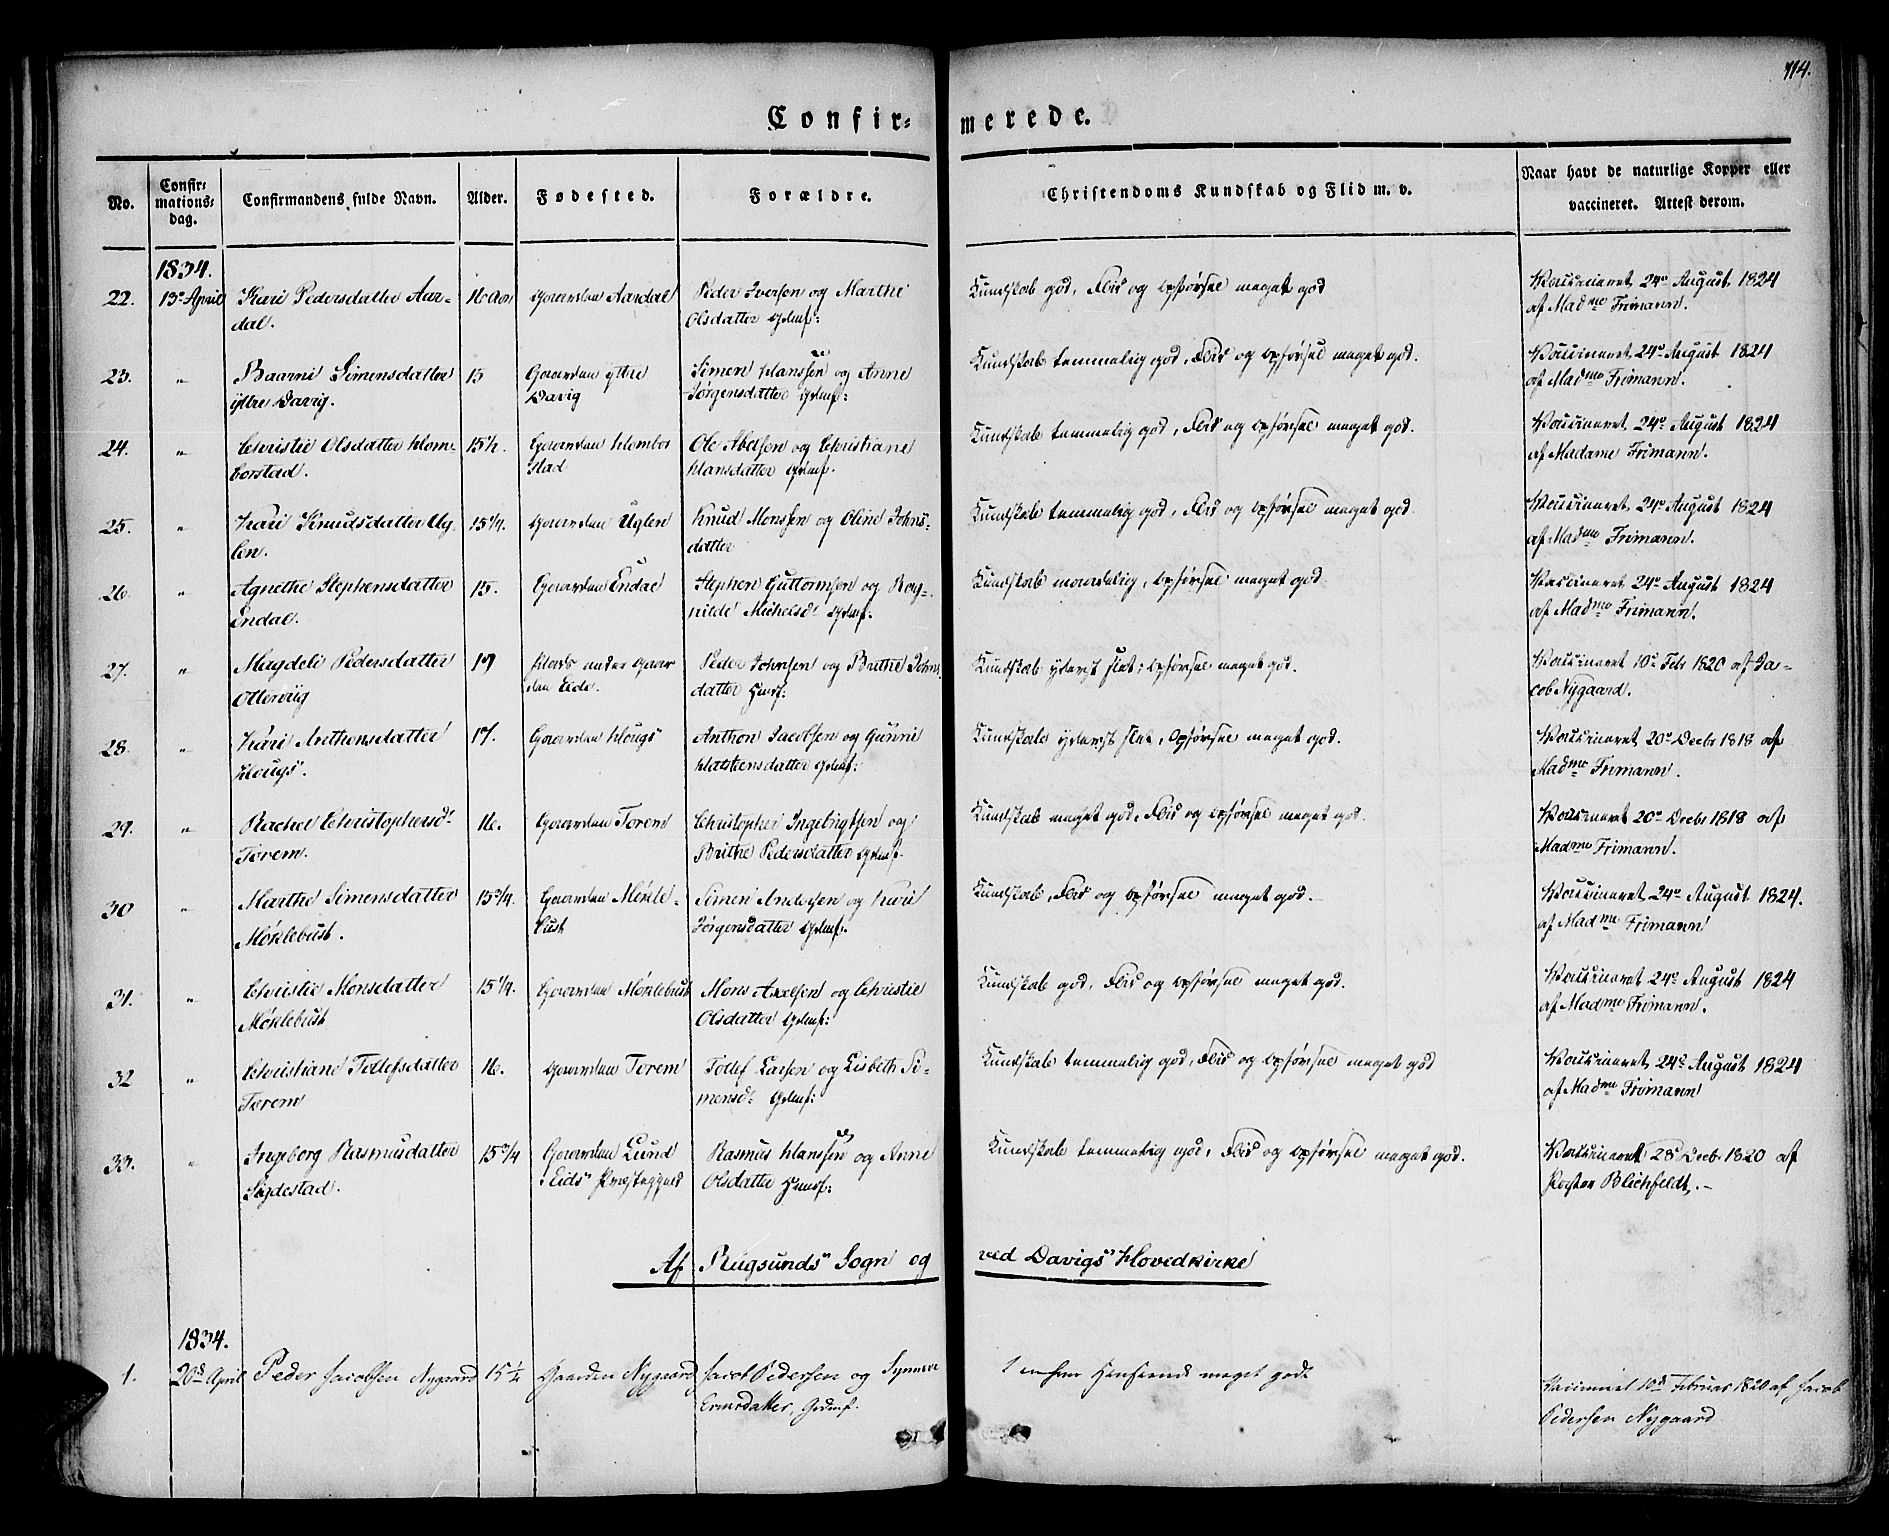 114.
Confir=
merede.
No.
Confir=
mations=
dag.
Confirmandens fulde Navn.
Alder.
Fødested.
Forældre.
Christendoms Kundskab og Flid m. v.
Naar havt de naturlige Kopper eller
vaccineret. Attest derom.
1834.
22. 13de April Kari Pedersdatter Aar- 16 Aar Gaarden Aardal Peder Iversen og Marthe Kundskab god, Flid og Opførsel meget god Vaccineret 24de August 1824
dal. Olsdatter Gdmf: af Madme Frimann.
23. " Simensdatter 15 Gaarden ÿttre Simen Hanssen og Anne Kundskab temmelig god, Flid og Opførsel meget god. Vaccineret 24de August 1824
ÿttre Davig. Davig Jørgensdatter Gdmf: af Madme Frimann.
24. " Christie Olsdatter Hom- 15½. Gaarden Hombor Ole Abelsen og Christiane Kundskab temmelig god, Flid og Opførsel meget god. Vaccineret 24de August 1824
borstad. stad Hansdatter Gdmf. af Madame Frimann.
25. " Kari Knudsdatter Ug- 15¼. Gaarden Uglen Knud Monssen og Oline Johns- Kundskab temmelig god, Flid og Opførsel meget god. Vaccineret 24de August 1824
len. datter af Madme Frimann.
26. " Agnethe Stephensdatter 15. Gaarden Endal Stephen Guttormsen og Rag- Kundskab maadelig, Opførsel meget god. Vaccineret 24de August 1824
Endal. nilde Michelsd: Gdmf. af Madme Frimann.
27. " Magdeli Pedersdatter 17 Plads under Gaar Peder Johnsen og Brithe Johns Kundskab yderst slet; Opførsel meget god. Vaccineret 10de Febr 1820 af Ja-
Otterviig den Eide. datter Huusf: cob Nygaard.
28. " Kari Anthonsdatter 17. Gaarden Hougs Anthon Jacobsen og Gunni Kundskab yderst slet, Opførsel meget god. Vaccineret 20de Decbr 1818 af
Hougs. Gdmf: Madme Frimann.
29. " Rachel Christophersd: 16. Gaarden Torem Christopher Ingebrigtsen og Kundskab meget god, Flid og Opførsel meget god. Vaccineret 20de Decbr 1818 af
Torem. Brithe Pedersdatter Gdmf. Madme Frimann.
30 " Marthe Simensdatter 15¾. Gaarden Møkle- Simen Andersen og Kari Kundskab, Flid og Opførsel meget god. Vaccineret 24de August 1824.
Møklebust. bust Jørgensdatter Gdmf. af Madme Frimann
31. " Christie Monsdatter 15¼. Gaarden Møklebust Mons Axelsen og Christie Kundskab god, Flid og Opførsel meget god. Vaccineret 24de August 1824
Møklebust Olsdatter Gdmf: af Madme Frimann.
32 " Christiane Tollefsdatter 16. Gaarden Torem Tollef Larsen og Lisbeth Si- Kundskab temmelig god, Flid og Opførsel meget god Vaccineret 24de August 1824
Torem mensd: Gdmf: af Madme Frimann
33. " Ingeborg Rasmusdatter 15¾ Gaarden Lund Rasmus Hanssen og Anne Kundskab temmelig god, Flid og Opførsel meget god. Vaccineret 28de Decbr 1820 af
Sÿdestad. Eids Præstegjeld Olsdatter Huusf: Pastor Blichfeldt.-
Af Rugsunds Sogn og ved Davigs Hovedkirke
1834.
1. 20de April Peder Jacobsen Nygaard 15½ Gaarden Nygaard Jacob Pedersen og Synneve meget godt Vaccineret 10de Februar 1820 af Jacob
Gdmf. Pedersen Nygaard